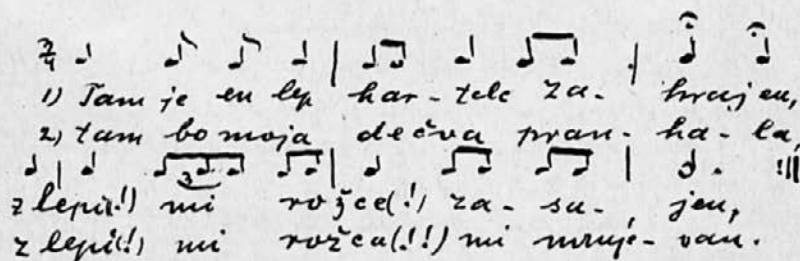 3/4
1) Tam je en lep har-telc za- hrajen,
2) tam bo moja dečva pran- ha-la,
z lepi(!) mi rožce(!) za- su- jen,
z lepi(!) mi rožcu(!!) mi